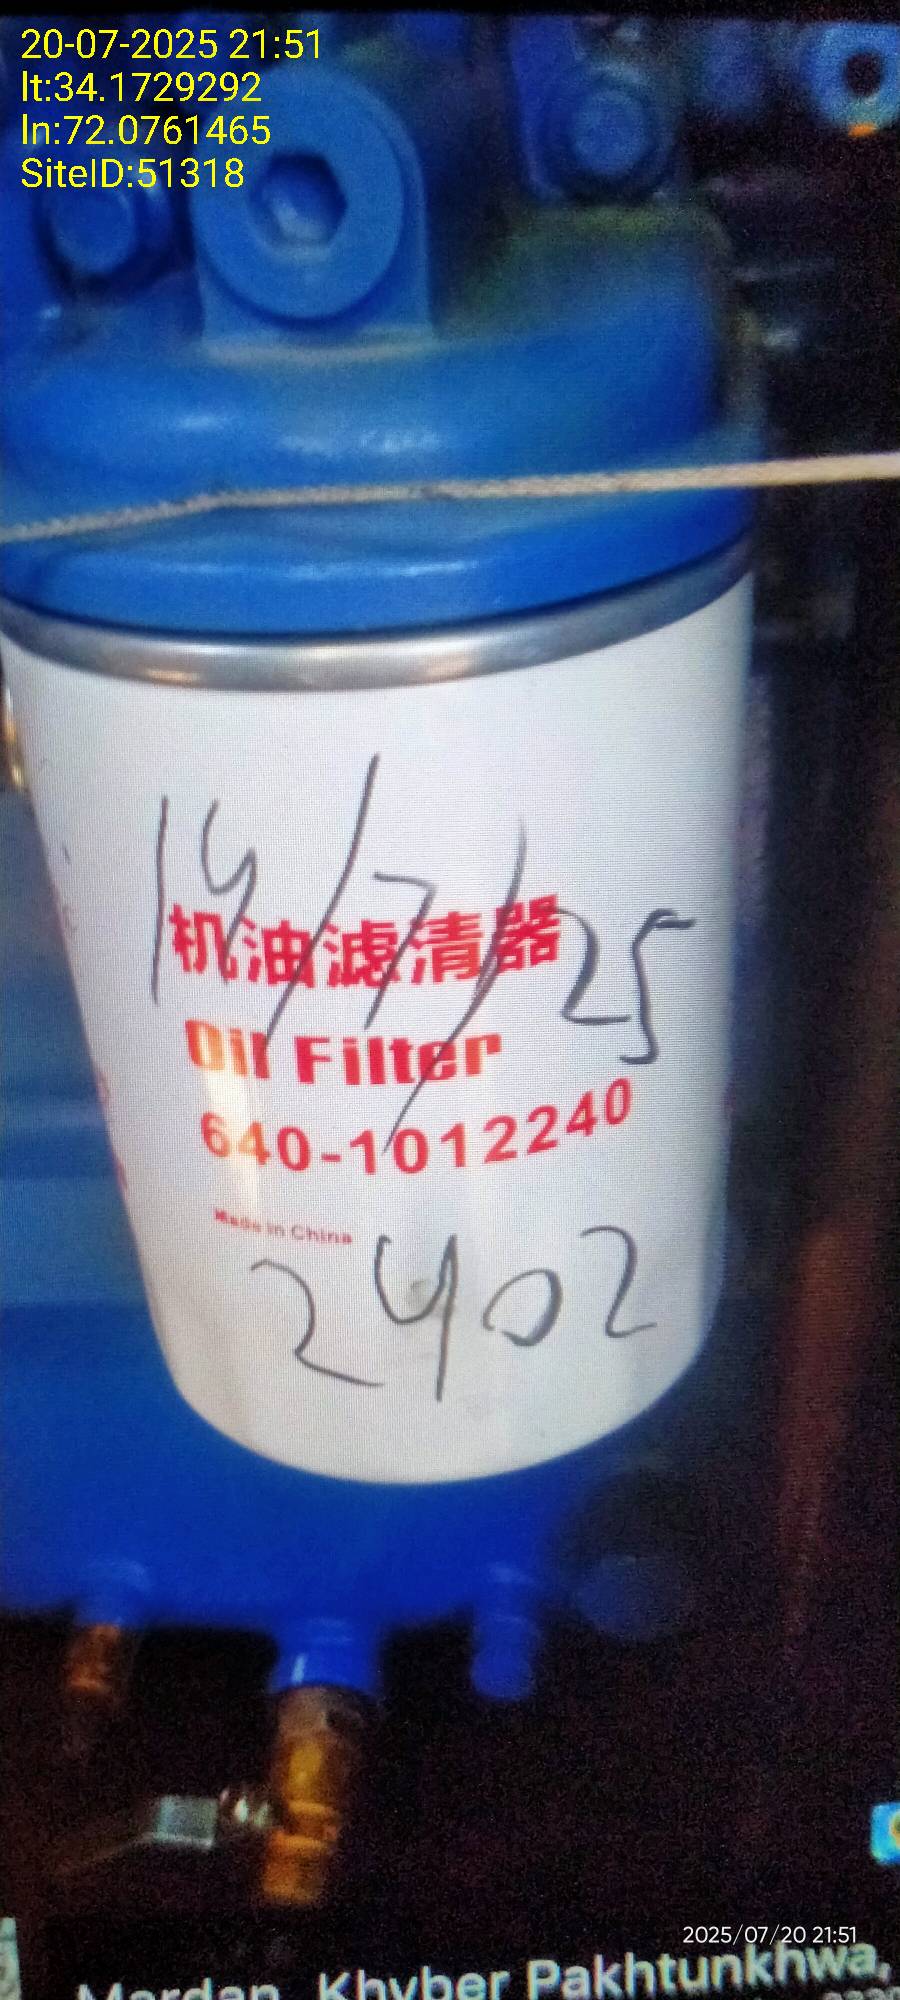 20-07-2025 21:51
lt:34.1729292
ln:72.0761465
SiteID:51318
19/7/25
机油滤清器
Oil Filter
640-1012240
Made in China
2402
2025/07/20 21:51
Mardan, Khyber Pakhtunkhwa,